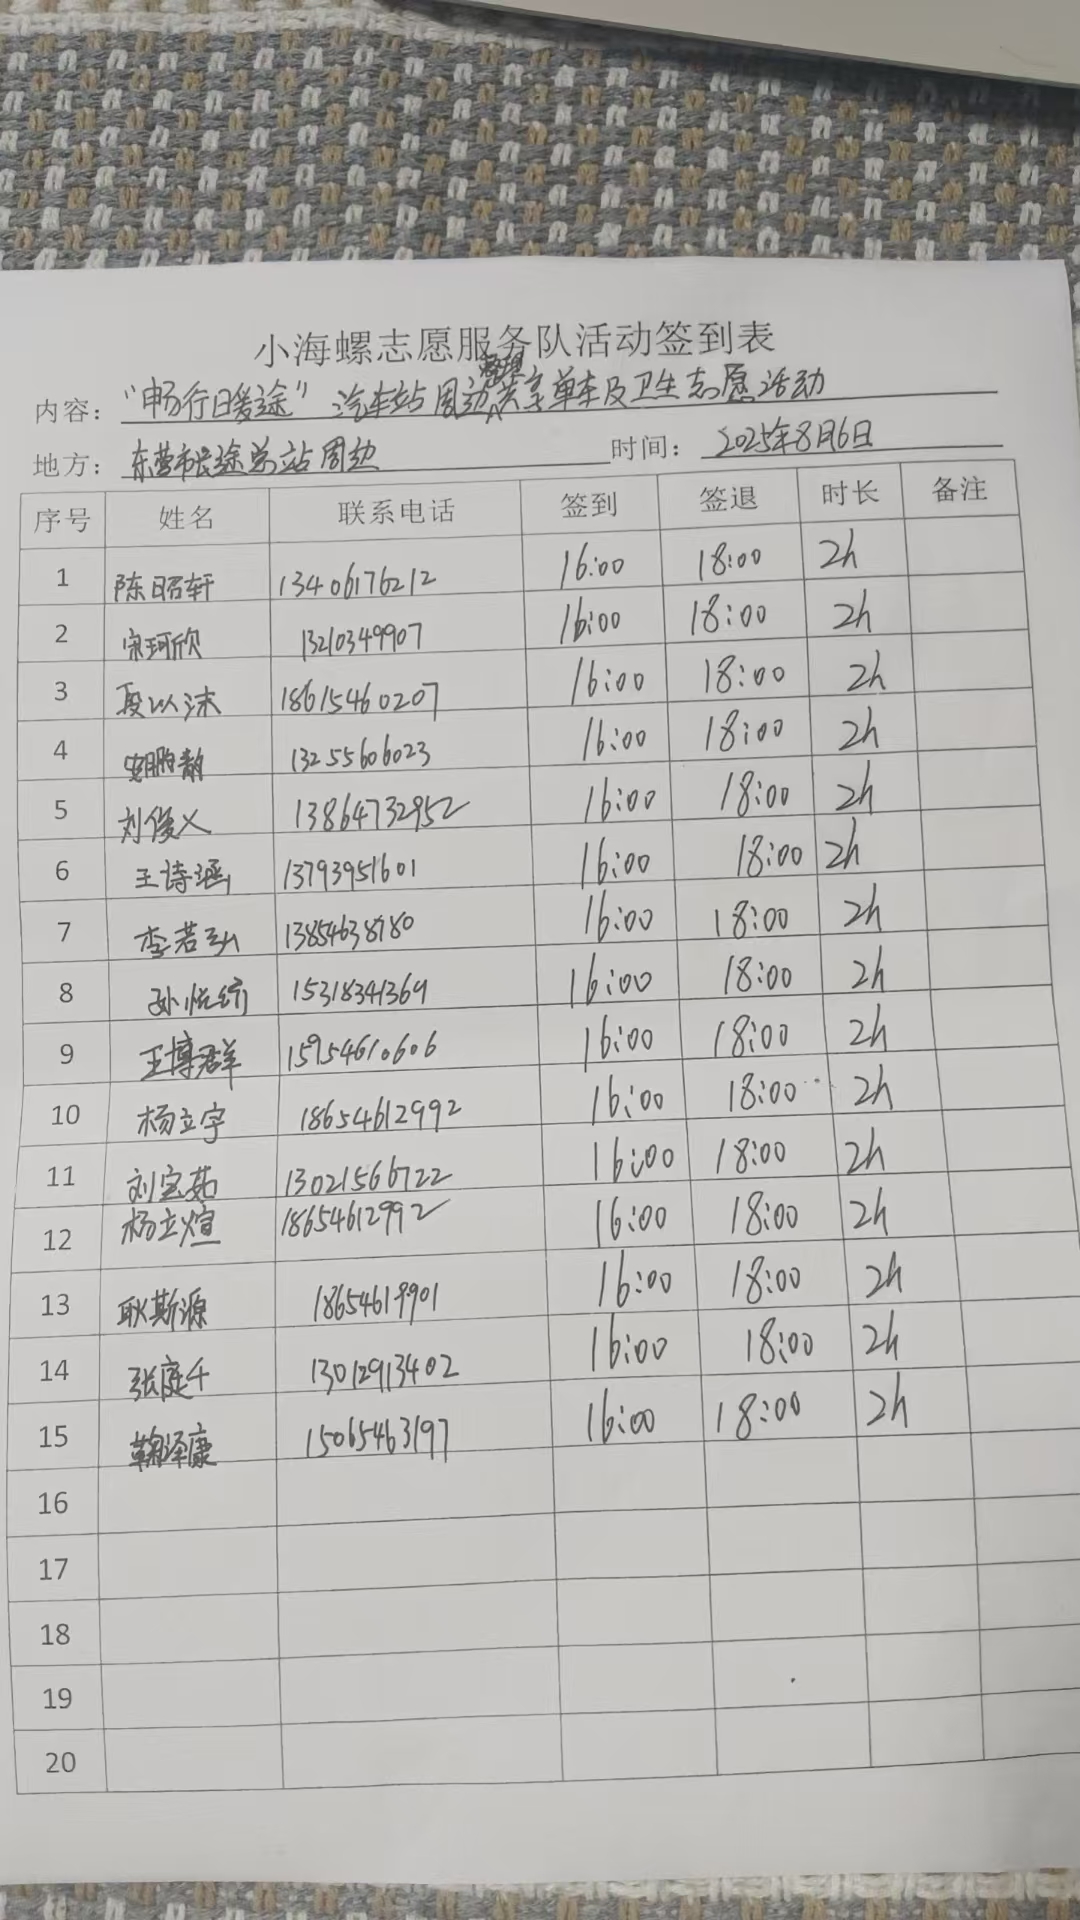 小海螺志愿服务队活动签到表
内容：“畅行暖途”汽车站周边整理共享单车及卫生志愿活动
地方：东营市长途总站周边 时间：2025年8月6日
序号 姓名 联系电话 签到 签退 时长 备注
1 陈昭轩 13406176212 16:00 18:00 2h
2 宋珂欣 13210349907 16:00 18:00 2h
3 以沫 18615460207 16:00 18:00 2h
4 13255606023 16:00 18:00 2h
5 刘俊义 13864732952 16:00 18:00 2h
6 王诗涵 13793951601 16:00 18:00 2h
7 李若弘 13854638780 16:00 18:00 2h
8 孙悦 15318341369 16:00 18:00 2h
9 王博群 15954610606 16:00 18:00 2h
10 杨立宇 18654612992 16:00 18:00 2h
11 刘宝茹 13021566722 16:00 18:00 2h
12 杨立煊 18654612992 16:00 18:00 2h
13 耿斯源 18654619901 16:00 18:00 2h
14 张庭千 13012913402 16:00 18:00 2h
15 鞠泽康 15065463197 16:00 18:00 2h
16
17
18
19
20